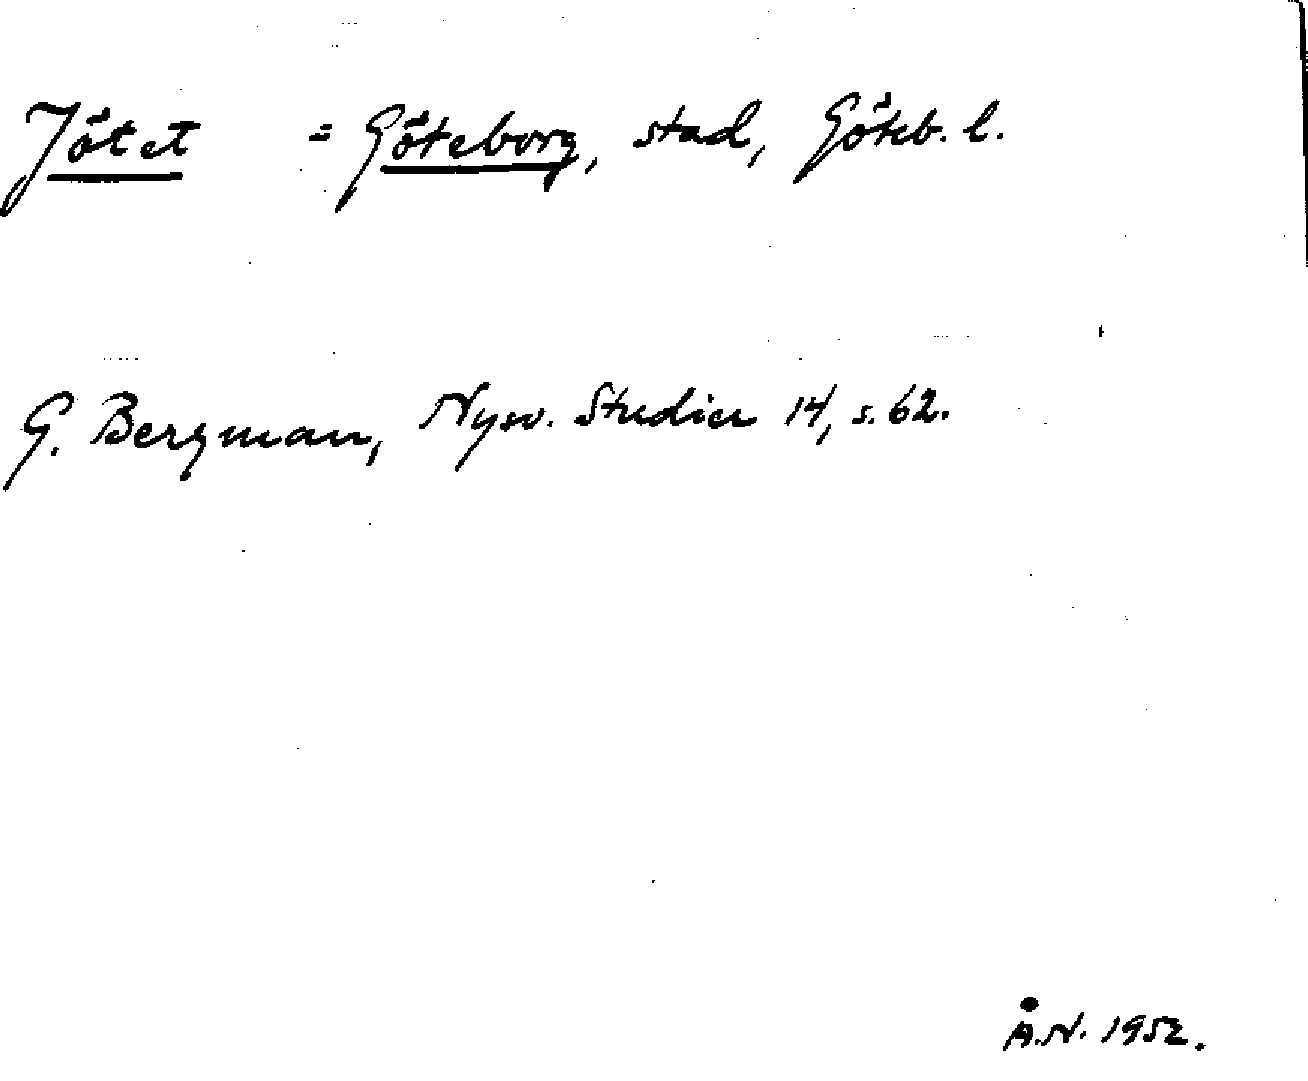 Jötet = Göteborg, stad, Göteb. l.
G. Bergman, Nysv. Studier 14, s. 62.
Å.N. 1952.